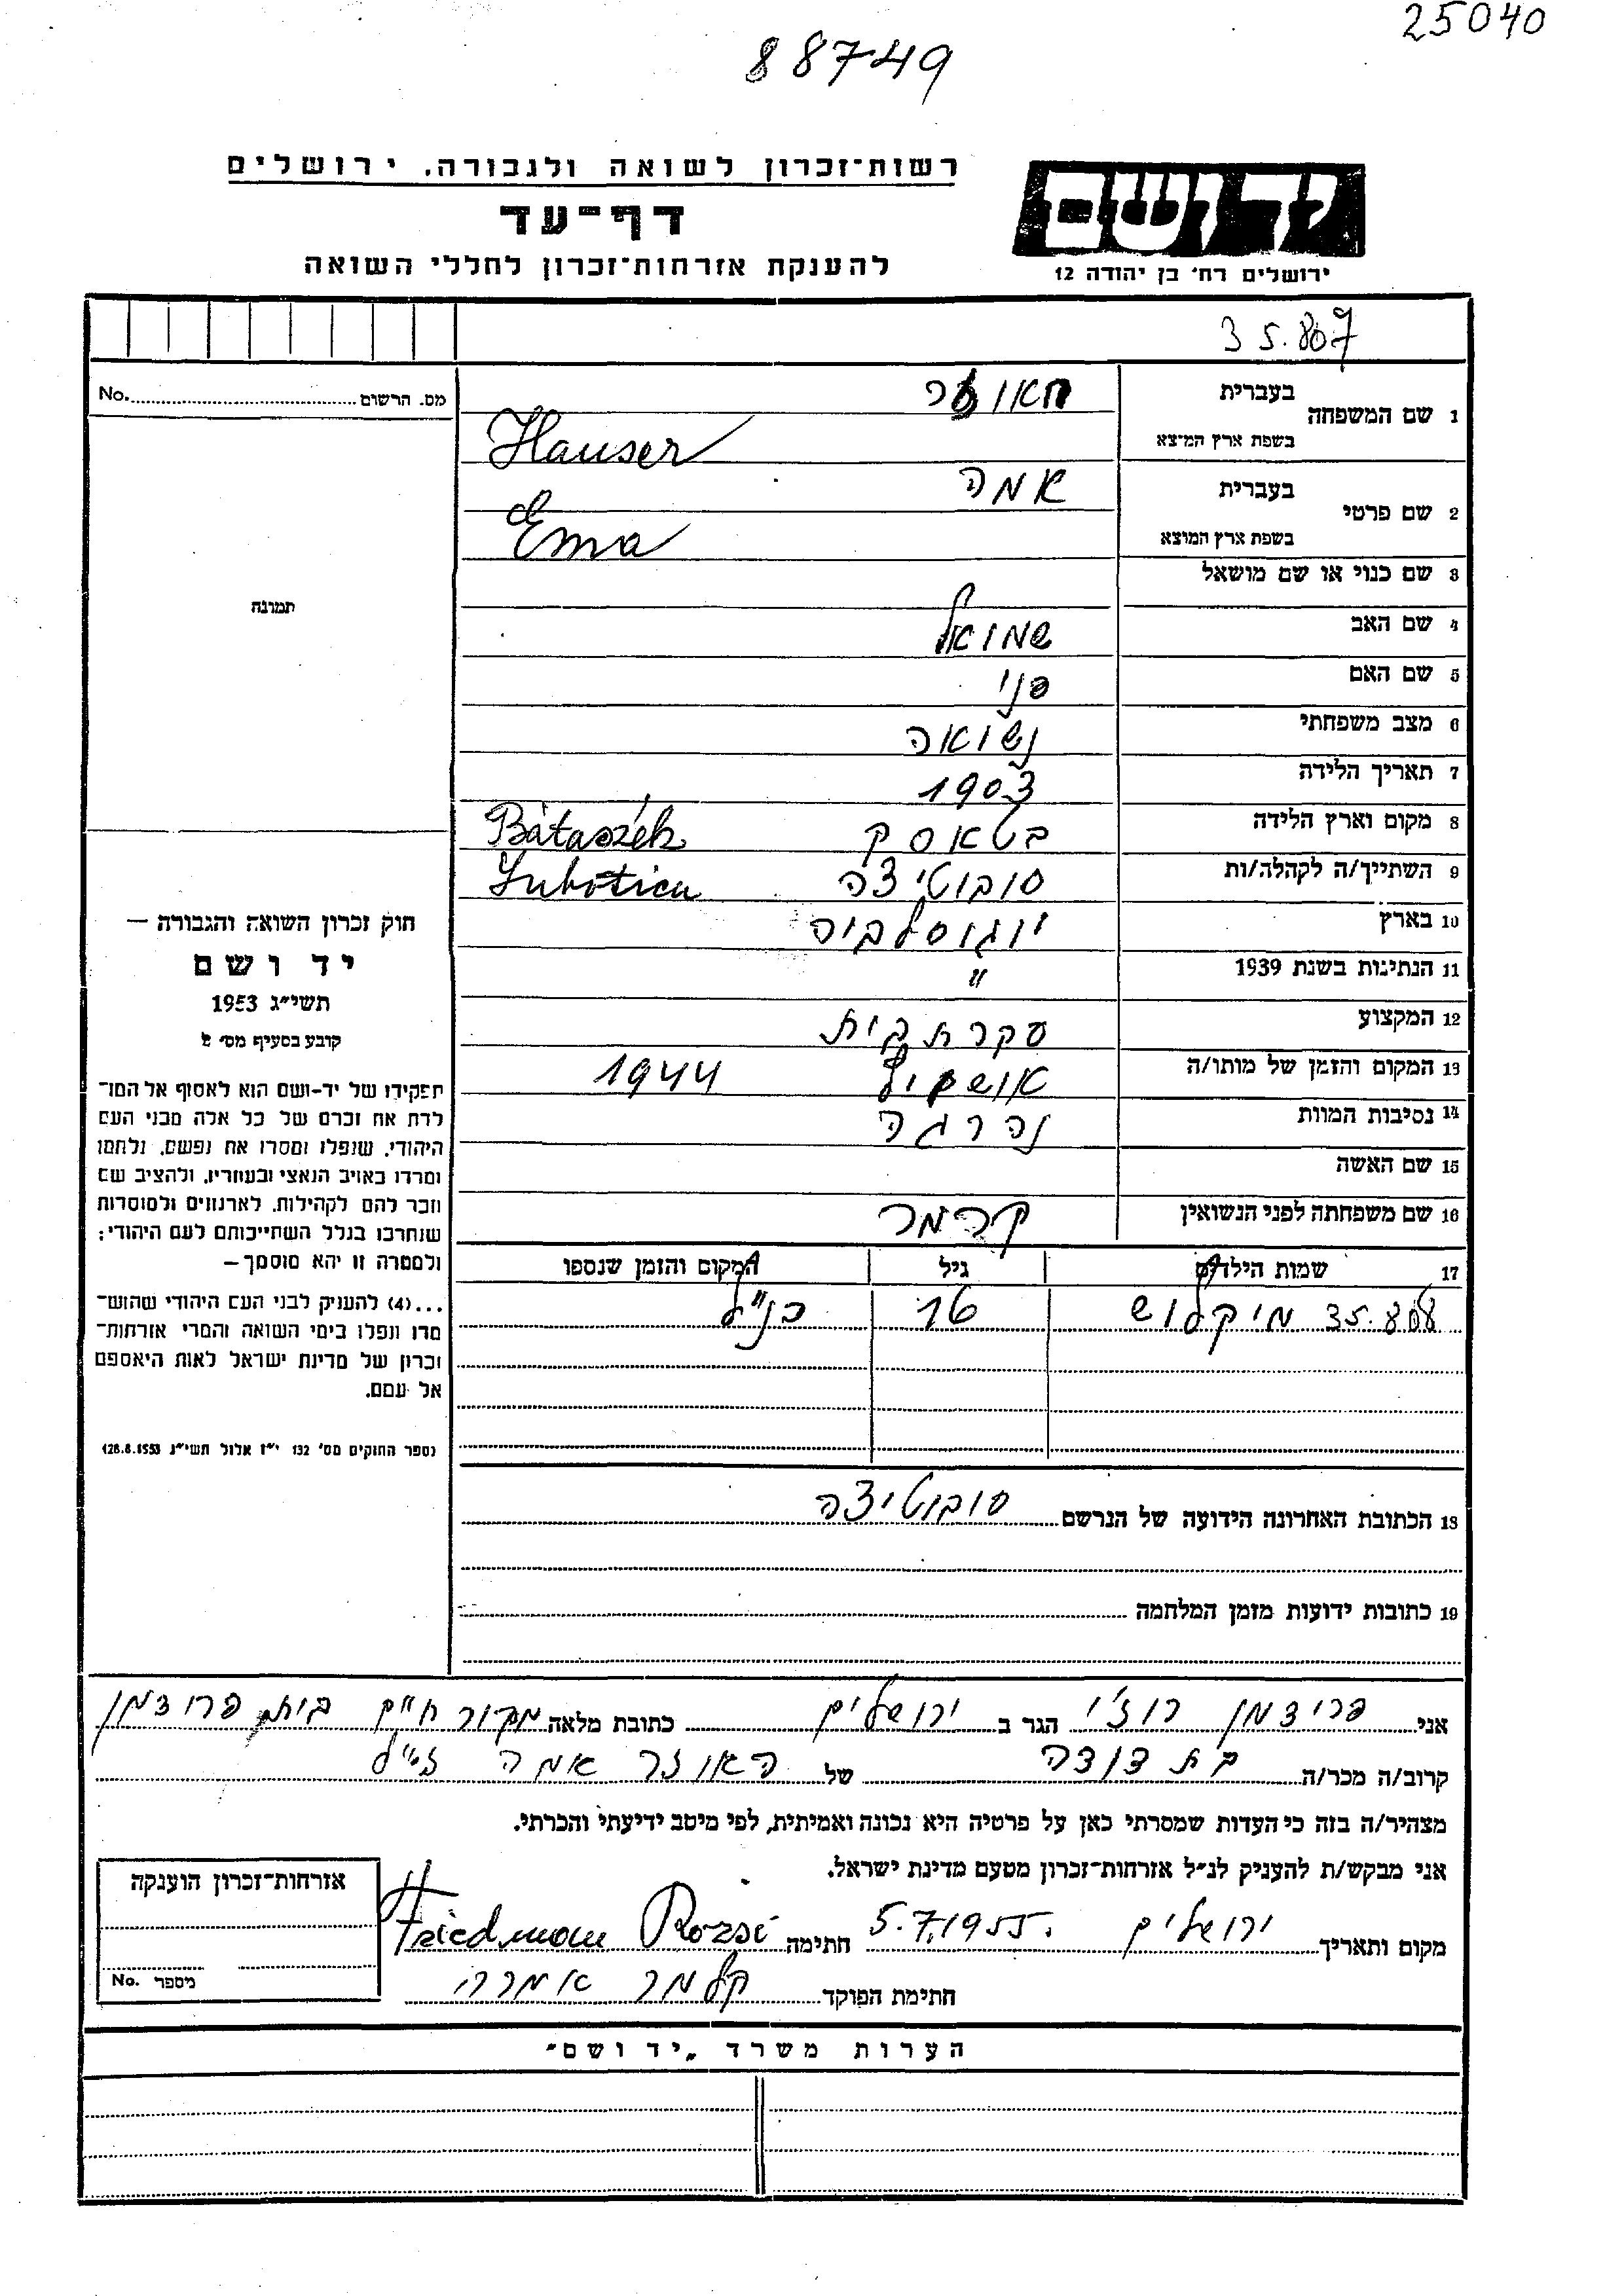 25040
88749
רשות־זכרון לשואה ולגבורה. ירושלים
דף־עד
להענקת אזרחות־זכרון לחללי השואה
יד ושם
ירושלים רח׳ בן יהודה 12
35.807
מס. הרשום No.
1 שם המשפחה בעברית האוזר
בשפת ארץ המוצא Hauser
2 שם פרטי בעברית אמה
בשפת ארץ המוצא Ema
3 שם כנוי או שם מושאל
4 שם האב שמואל
5 שם האם פני
6 מצב משפחתי נשואה
7 תאריך הלידה 1903
8 מקום וארץ הלידה בטאסק Bátaszék
9 השתייך/ה לקהלה/ות סובוטיצה Subotica
10 בארץ יוגוסלביה
11 הנתינות בשנת 1939 "
12 המקצוע עקרת בית
13 המקום והזמן של מותו/ה 1944
14 נסיבות המוות נהרגה
15 שם האשה
16 שם משפחתה לפני הנשואין קרמר
17 שמות הילדים גיל המקום והזמן שנספו
35.808 מיקלוש 16 כנ"ל
18 הכתובת האחרונה הידועה של הנרשם סובוטיצה
19 כתובות ידועות מזמן המלחמה
תמונה
חוק זכרון השואה והגבורה —
יד ושם
תשי״ג 1953
קובע בסעיף מס׳ 2
תפקידו של יד-ושם הוא לאסוף אל המו־
לדת את זכרם של כל אלה מבני העם
היהודי, שנפלו ומסרו את נפשם, נלחמו
ומרדו באויב הנאצי ובעוזריו, ולהציב שם
וזכר להם לקהילות, לארגונים ולמוסדות
שנחרבו בגלל השתייכותם לעם היהודי;
ולמטרה זו יהא מוסמך —
...(4) להעניק לבני העם היהודי שהוש־
מדו ונפלו בימי השואה והמרי אזרחות־
זכרון של מדינת ישראל לאות היאספם
אל עמם.
(ספר החוקים מס׳ 132 י״ז אלול תשי״ג 28.8.1953)
אני פרידמן רוז'י הגר ב ירושלים כתובת מלאה מקור חיים בית פרידמן
קרוב/ה מכר/ה בת דודה של האוזר אמה ז"ל
מצהיר/ה בזה כי העדות שמסרתי כאן על פרטיה היא נכונה ואמיתית, לפי מיטב ידיעתי והכרתי.
אני מבקש/ת להעניק לנ״ל אזרחות־זכרון מטעם מדינת ישראל.
מקום ותאריך ירושלים 5.7.1955. חתימה Friedmann Rozsi
חתימת הפוקד קלמר
אזרחות־זכרון הוענקה
מספר No.
הערות משרד „יד ושם״